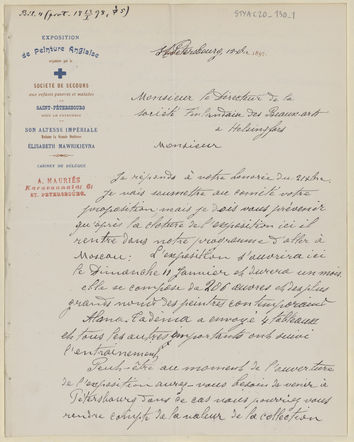 Bil. 4 (prot. 18 13/2 98, § 5)
STYA:C20_130_1
EXPOSITION
de Peinture Anglaise
organisée par la
SOCIÉTÉ DE SECOURS
aux enfants pauvres et malades
SAINT-PÉTERSBOURG
SON ALTESSE IMPÉRIALE
Madame la Grande Duchesse
ÉLISABETH MAWRIKIEVNA
CABINET DU DÉLÉGUÉ
A. MAURIÉS
Karavannaïa 6
ST. PETERSBOURG.
St Pétersbourg, 189
Monsieur le Directeur de la
société Finlandaise des Beaux arts
à Helsingfors
Monsieur
Je réponds à votre honorée du
je vais soumettre au comité votre
proposition mais je dois vous prévenir
qu'après la cloture de l'exposition ici il
rentre dans notre programme d'aller à
Moscou: L'exposition s'ouvrira ici
le Dimanche 11 Janvier et durera un mois.
elle se compose de 206 œuvres des plus
grands noms des peintres contemporains
Alma-Tadema a envoyé 4 tableaux
et tous les autres importants ont suivi
l'entrainement
Peut-être au moment de l'ouverture
de l'exposition aurez-vous besoin de venir à
Pétersbourg dans ce cas vous pourriez vous
rendre compte de la valeur de la collection